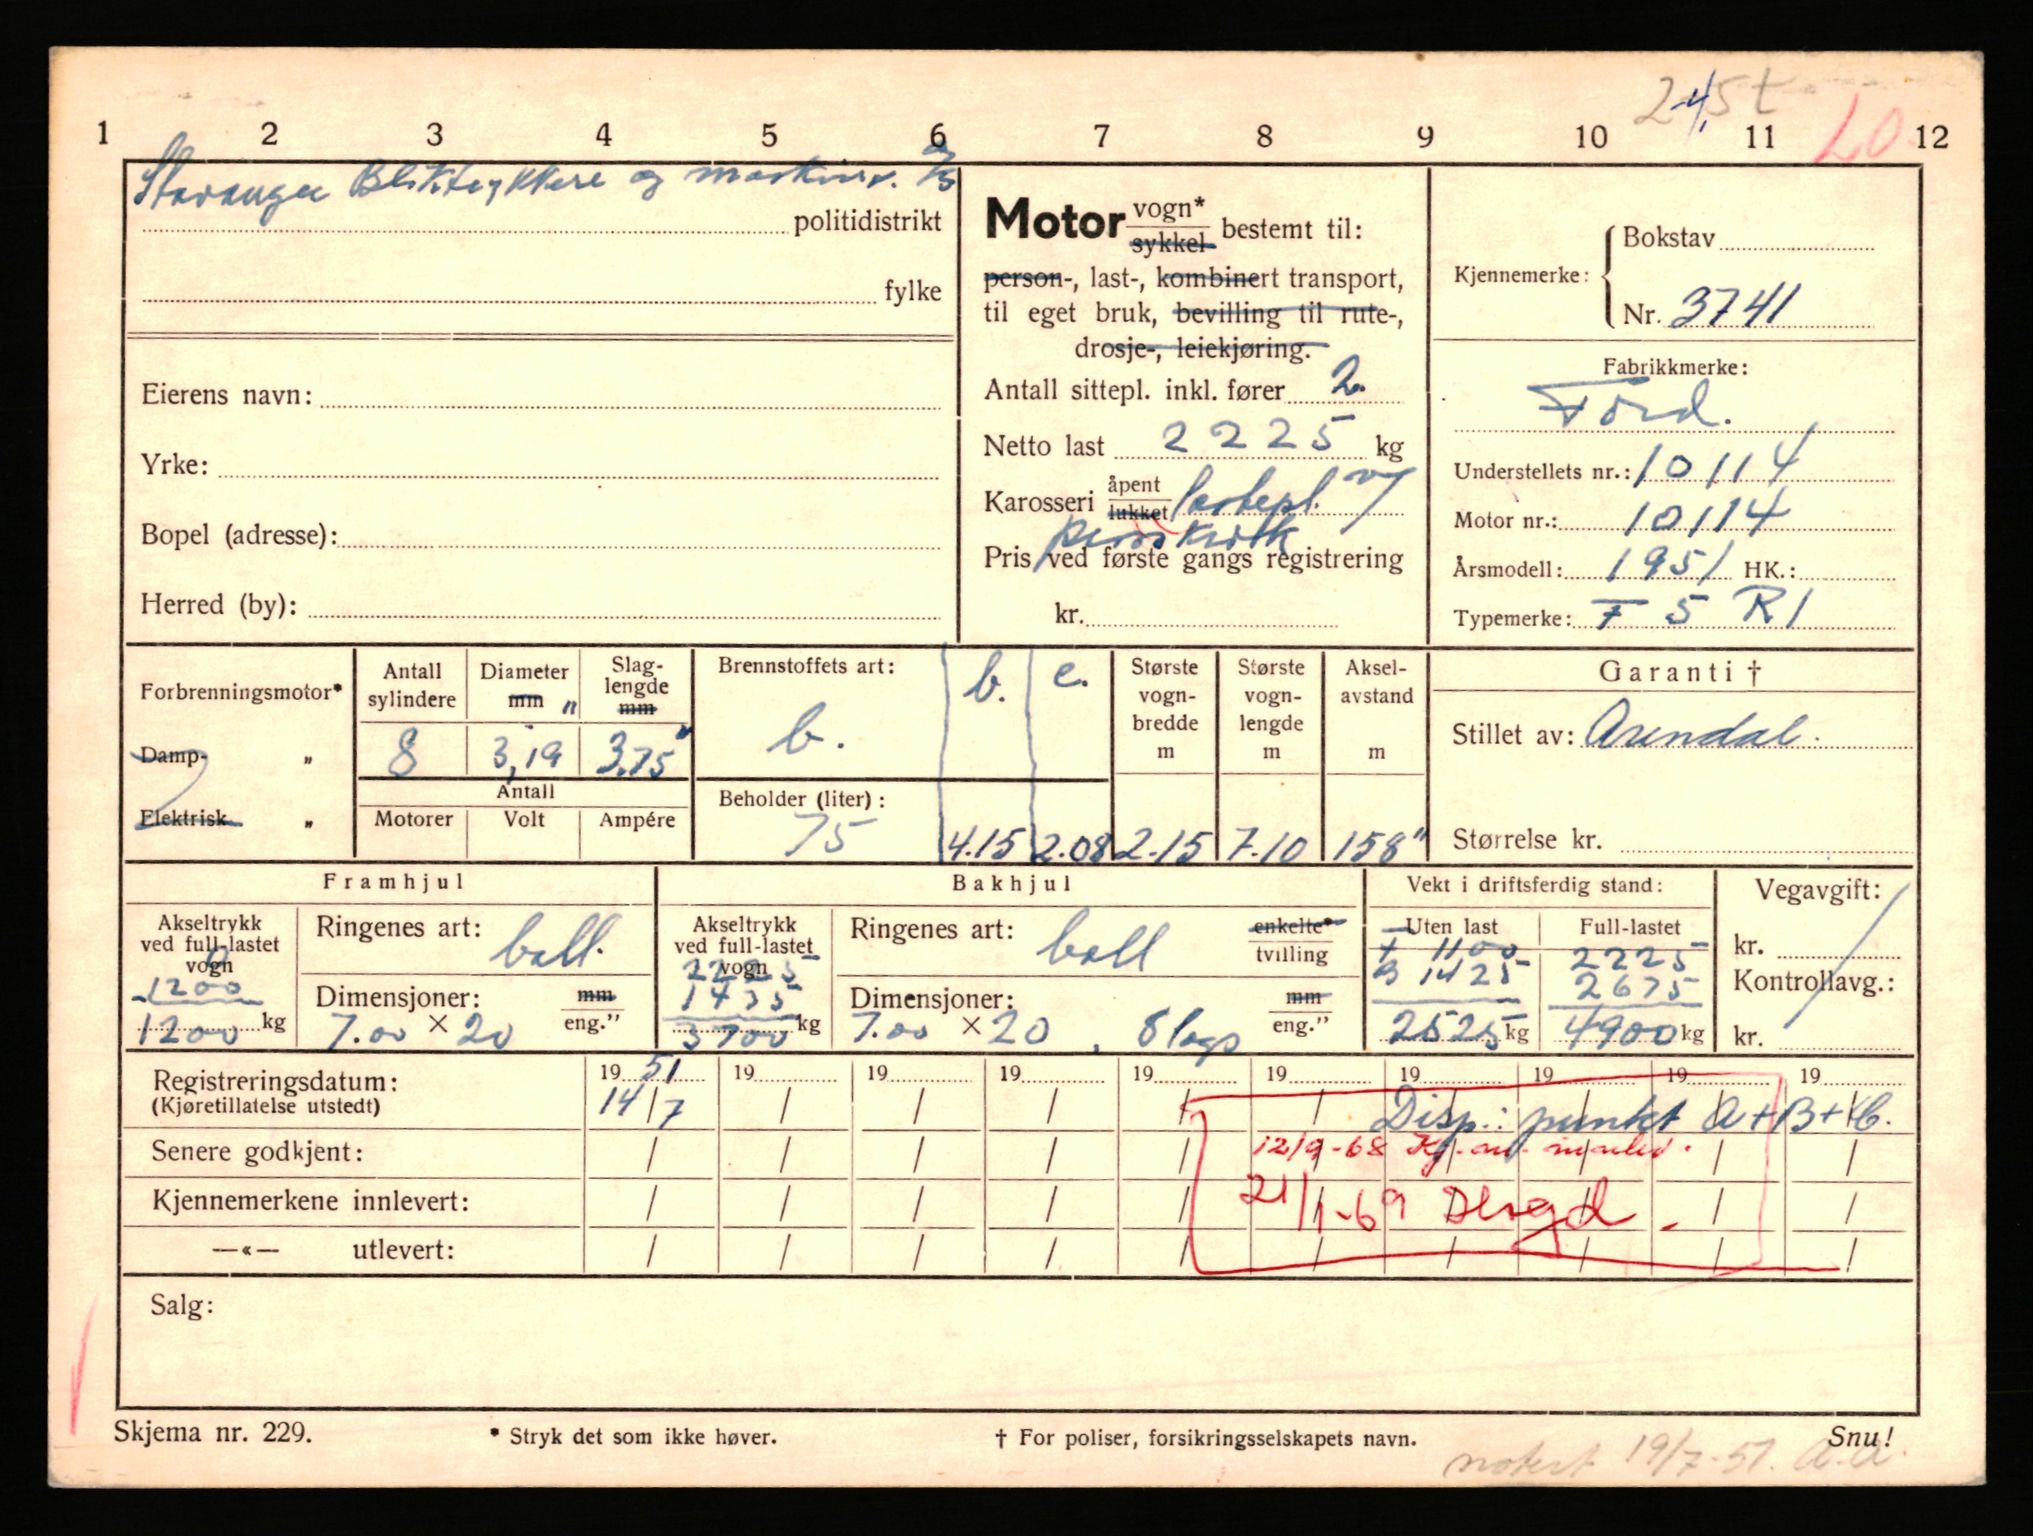 2-4,5t
20
1 2 3 4 5 6 7 8 9 10 11 12
Stavanger Blikktrykkeri og maskinv. A/S
politidistrikt
fylke
Eierens navn:
Yrke:
Bopel (adresse):
Herred (by):
Motor vogn* sykkel bestemt til:
person-, last-, kombinert transport,
til eget bruk, bevilling til rute-,
drosje-, leiekjøring.
Antall sittepl. inkl. fører 2
Netto last 2225 kg
Karosseri åpent lukket lastepl.
Pris ved første gangs registrering
kr.
Kjennemerke: Bokstav
Nr. 3741
Fabrikkmerke:
Ford.
Understellets nr.: 10114
Motor nr.: 10114
Årsmodell: 1951 HK.:
Typemerke: F 5 R1
Forbrenningsmotor*
Damp- „
Elektrisk „
Antall sylindere 8
Diameter mm " 3,19
Slaglengde mm 3,75"
Antall
Motorer Volt Ampére
Brennstoffets art: b.
Beholder (liter): 75
b. 4.15
c. 2.08
Største vognbredde m 2.15
Største vognlengde m 7.10
Akselavstand m 158"
Garanti †
Stillet av: Arendal.
Størrelse kr.
Framhjul
Akseltrykk ved full-lastet vogn
0
1200
1200 kg
Ringenes art: ball.
Dimensjoner: mm eng."
7.00 × 20
Bakhjul
Akseltrykk ved full-lastet vogn
2225
1475
3700 kg
Ringenes art: ball enkelte* tvilling
Dimensjoner: mm eng."
7.00 × 20, 8 lags
Vekt i driftsferdig stand:
Uten last Full-lastet
F 1100 2225
B 1425 2675
2525 kg 4900 kg
Vegavgift:
kr.
Kontrollavg.:
kr.
Registreringsdatum: 1951 19 19 19 19 19 19 19 19 19
(Kjøretillatelse utstedt) 14/7 / / / / / / / / /
Disp.: punkt A+B+C.
Senere godkjent: / / / / / / / / / /
12/9-68
Kjennemerkene innlevert: / / / / / / / / / /
21/1-69
—«— utlevert: / / / / / / / / / /
Salg:
Skjema nr. 229.
* Stryk det som ikke høver.
† For poliser, forsikringsselskapets navn.
Snu!
notert 19/7-51. A.A